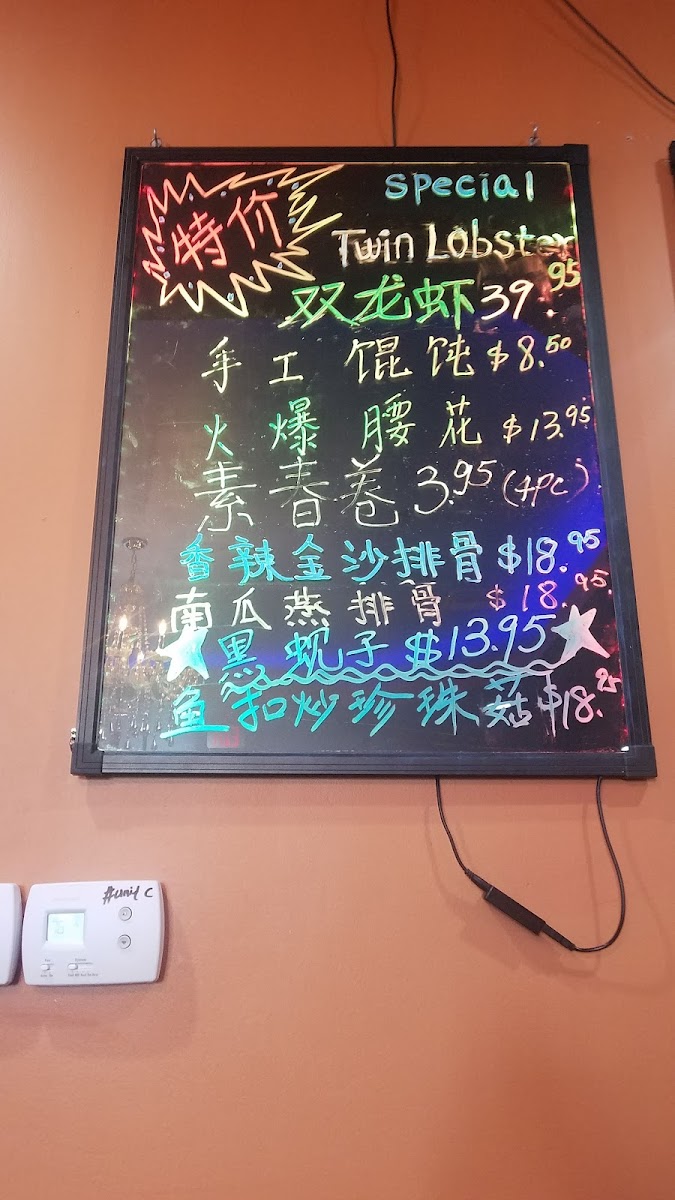 特价
Special
Twin Lobster
双龙虾 39.95
手工馄饨 $8.50
火爆腰花 $13.95
素春卷 3.95 (4PC)
香辣金沙排骨 $18.95
南瓜蒸排骨 $18.95
黑蚬子 $13.95
鱼扣炒珍珠菇 $18.25
#unit C